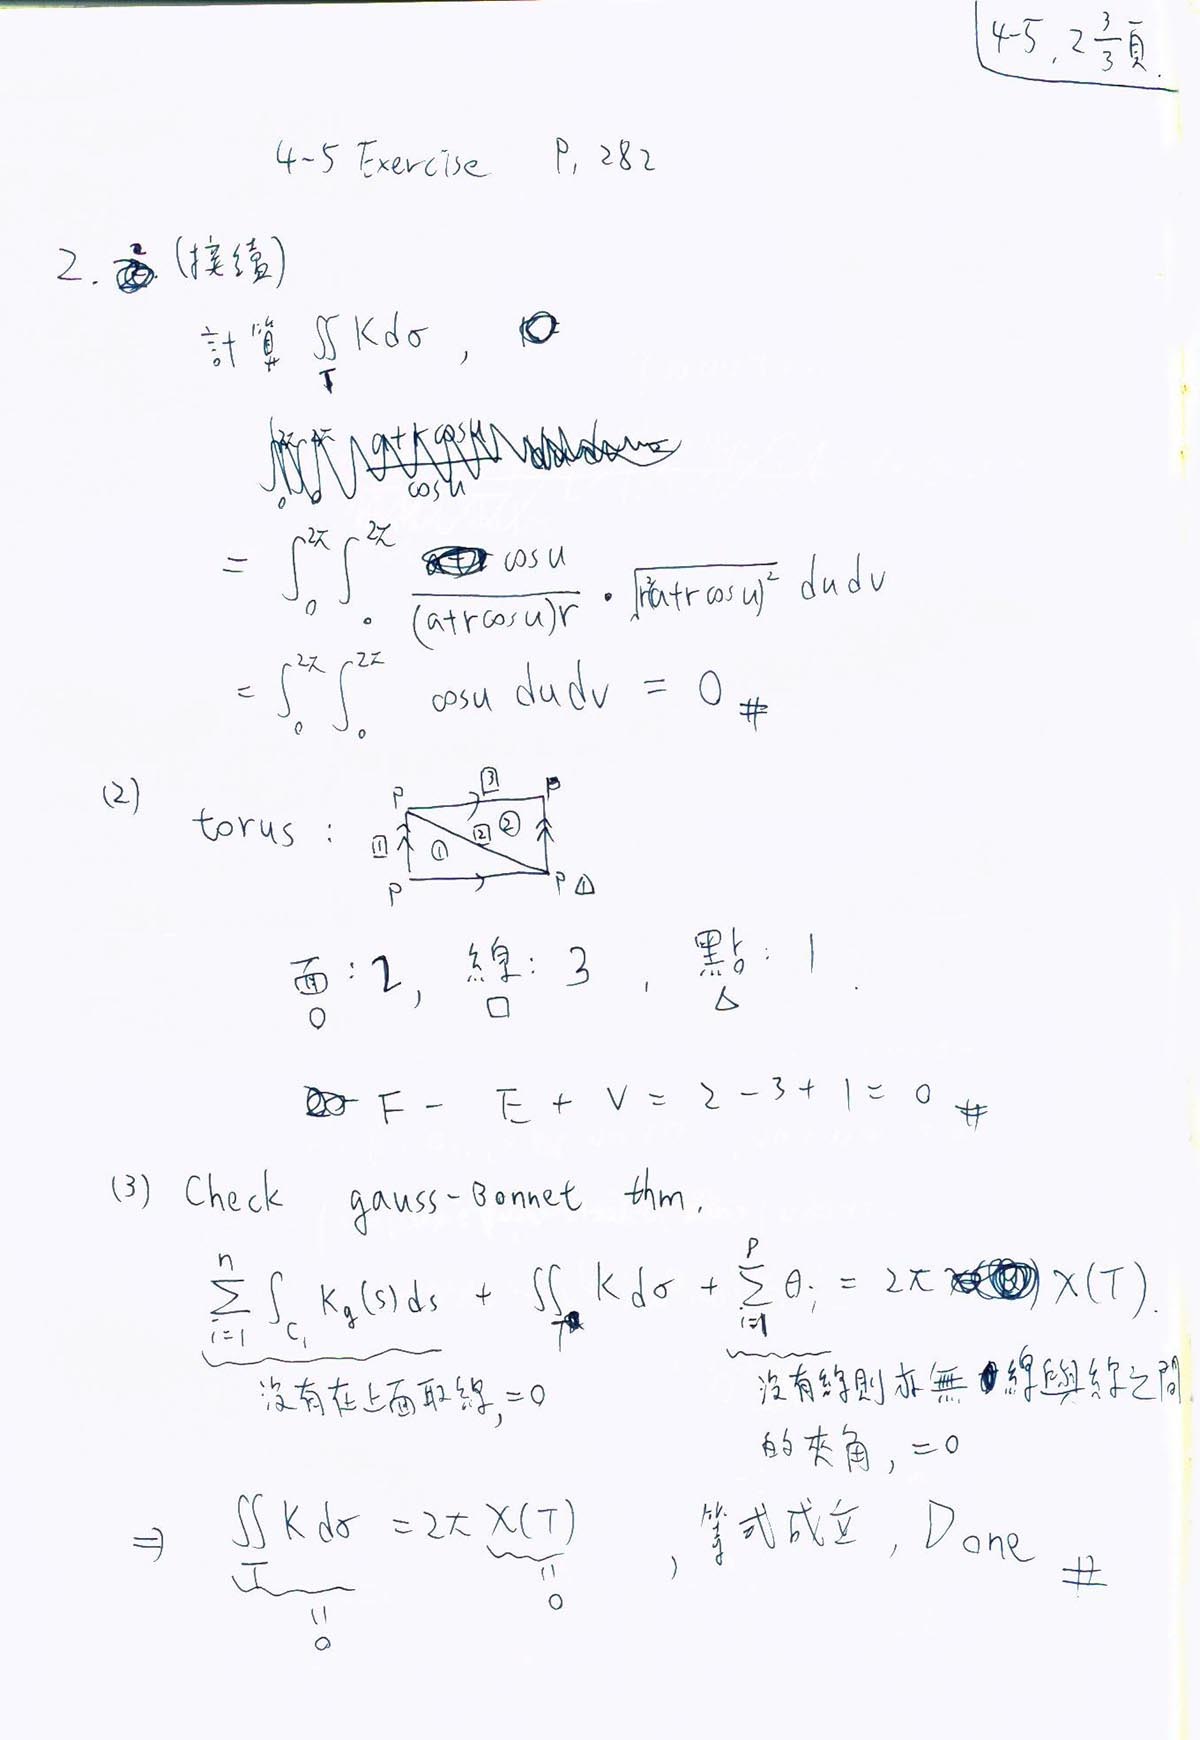 4-5, 2 3/3 頁.
4-5 Exercise P, 282
2. 2 (接續)
計算 ∬_T K dσ ,
= ∫_0^{2π} ∫_0^{2π} cos u / (a+r cos u)r · √(r²(a+r cos u)²) du dv
= ∫_0^{2π} ∫_0^{2π} cos u du dv = 0 #
(2)
torus :
P ③ P
① ① ② ②
P P △1
面 : 2, 線 : 3 , 點 : 1 .
○ □ △
F - E + V = 2 - 3 + 1 = 0 #
(3) Check gauss-Bonnet thm.
∑_{i=1}^{n} ∫_{C_i} K_g(s) ds + ∬_T K dσ + ∑_{i=1}^{p} θ_i = 2π χ(T).
沒有在上面取線, =0 沒有線則亦無線與線之間
的夾角, =0
⇒ ∬_T K dσ = 2π χ(T) , 等式成立, Done #
= 0 = 0